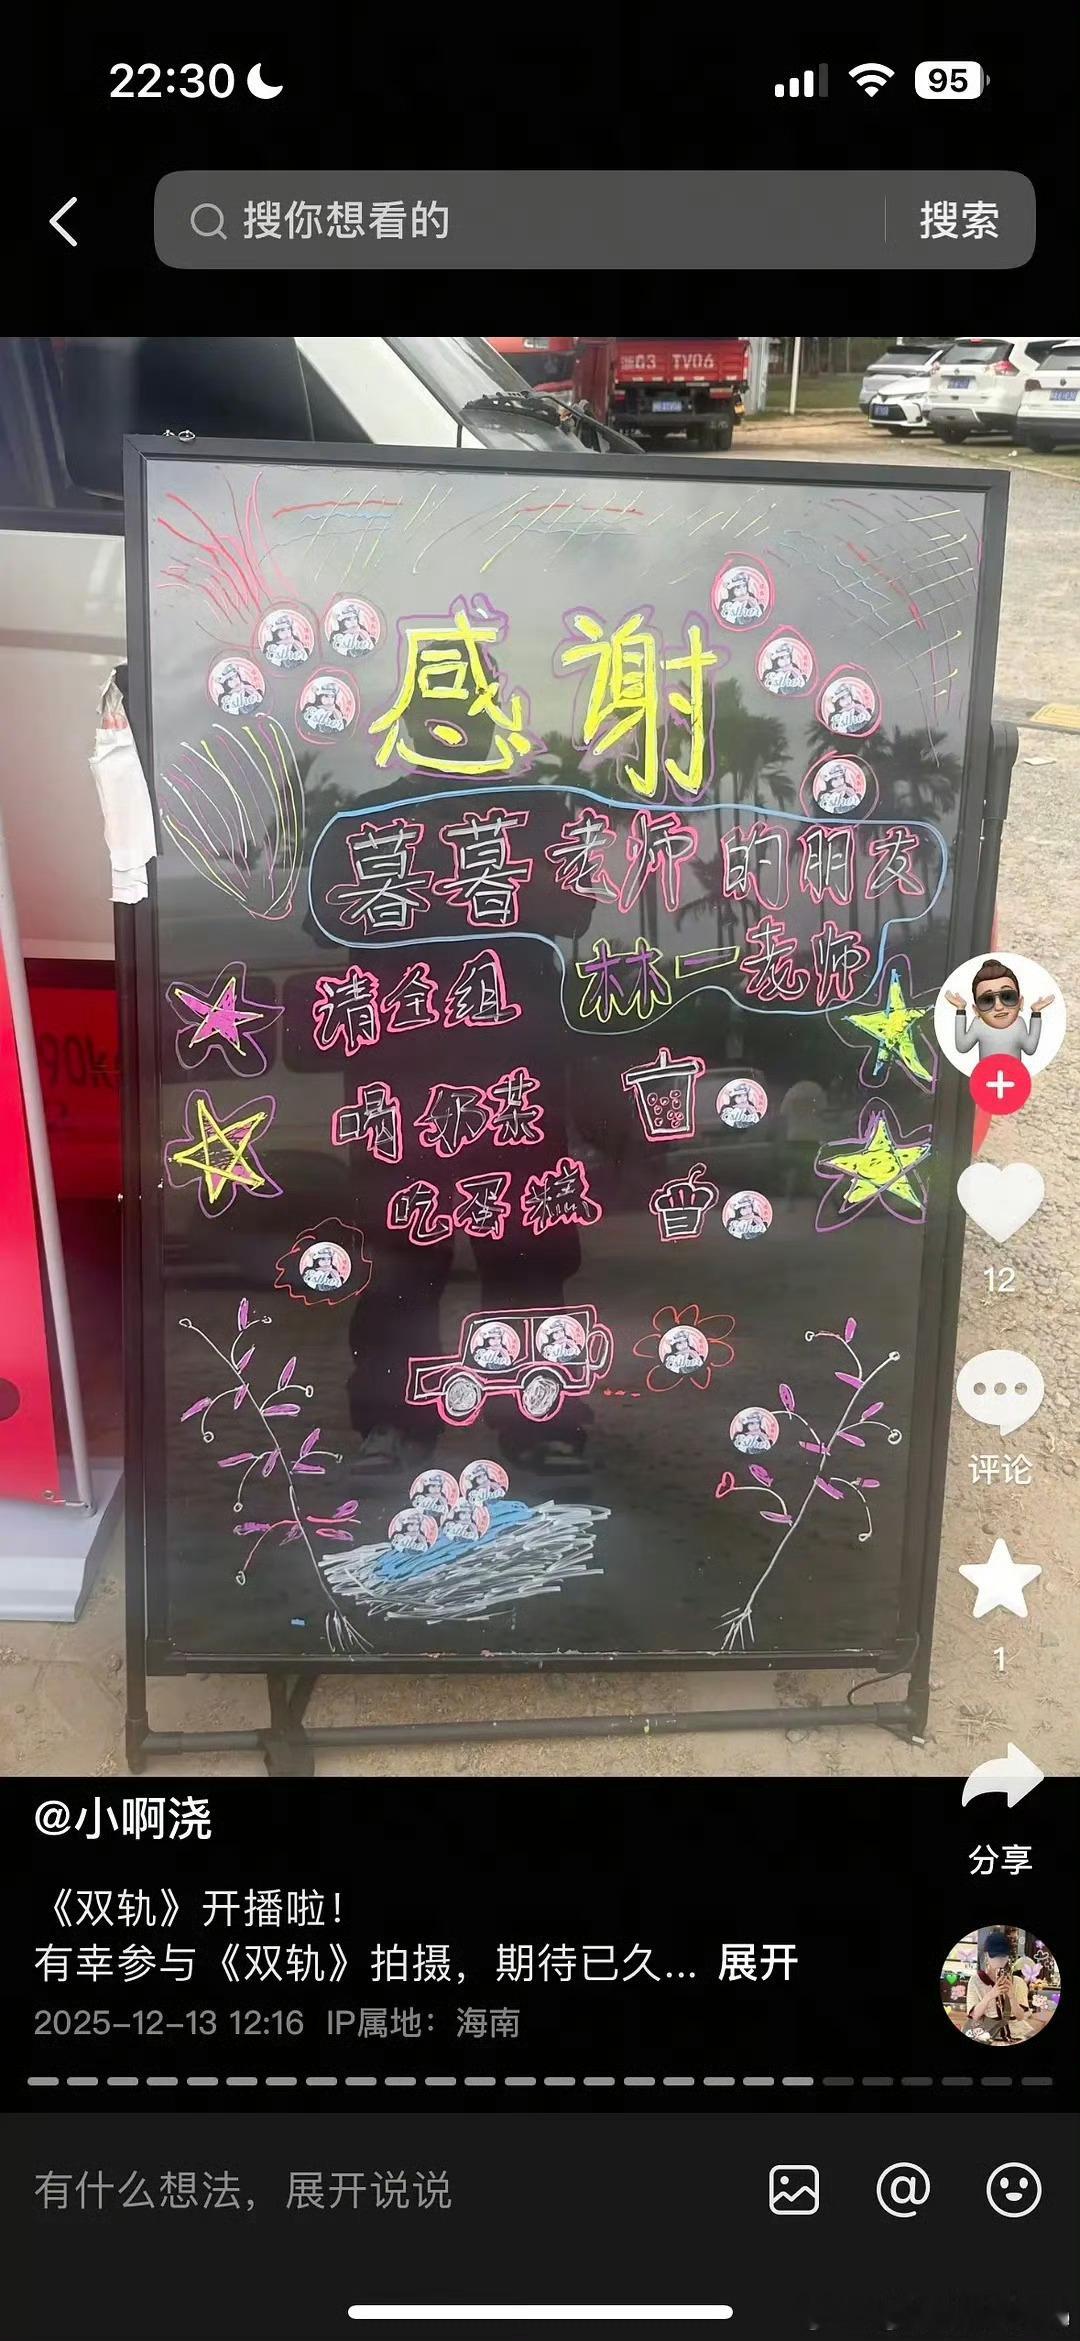 22:30
95
搜你想看的
搜索
G3 TV06
感谢
暮暮老师的朋友
林一老师
请全组
喝奶茶
吃蛋糕
Esther
90k
12
评论
1
分享
@小啊浇
《双轨》开播啦！
有幸参与《双轨》拍摄，期待已久... 展开
2025-12-13 12:16 IP属地：海南
有什么想法，展开说说